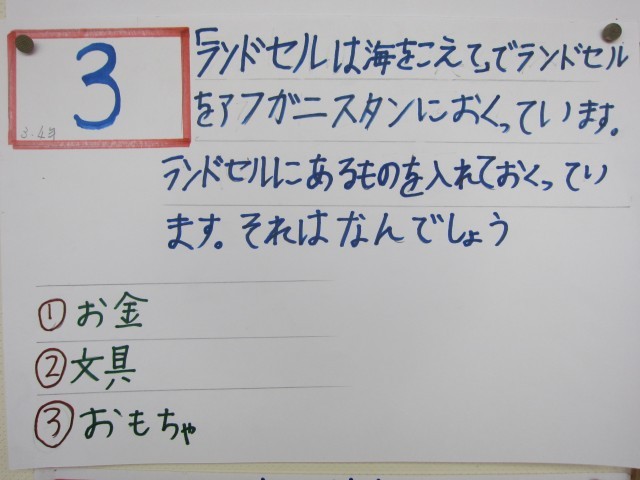 3
「ランドセルは海をこえて」でランドセル
をアフガニスタンにおくっています。
ランドセルにあるものを入れておくってい
ます。それはなんでしょう
①お金
②文具
③おもちゃ